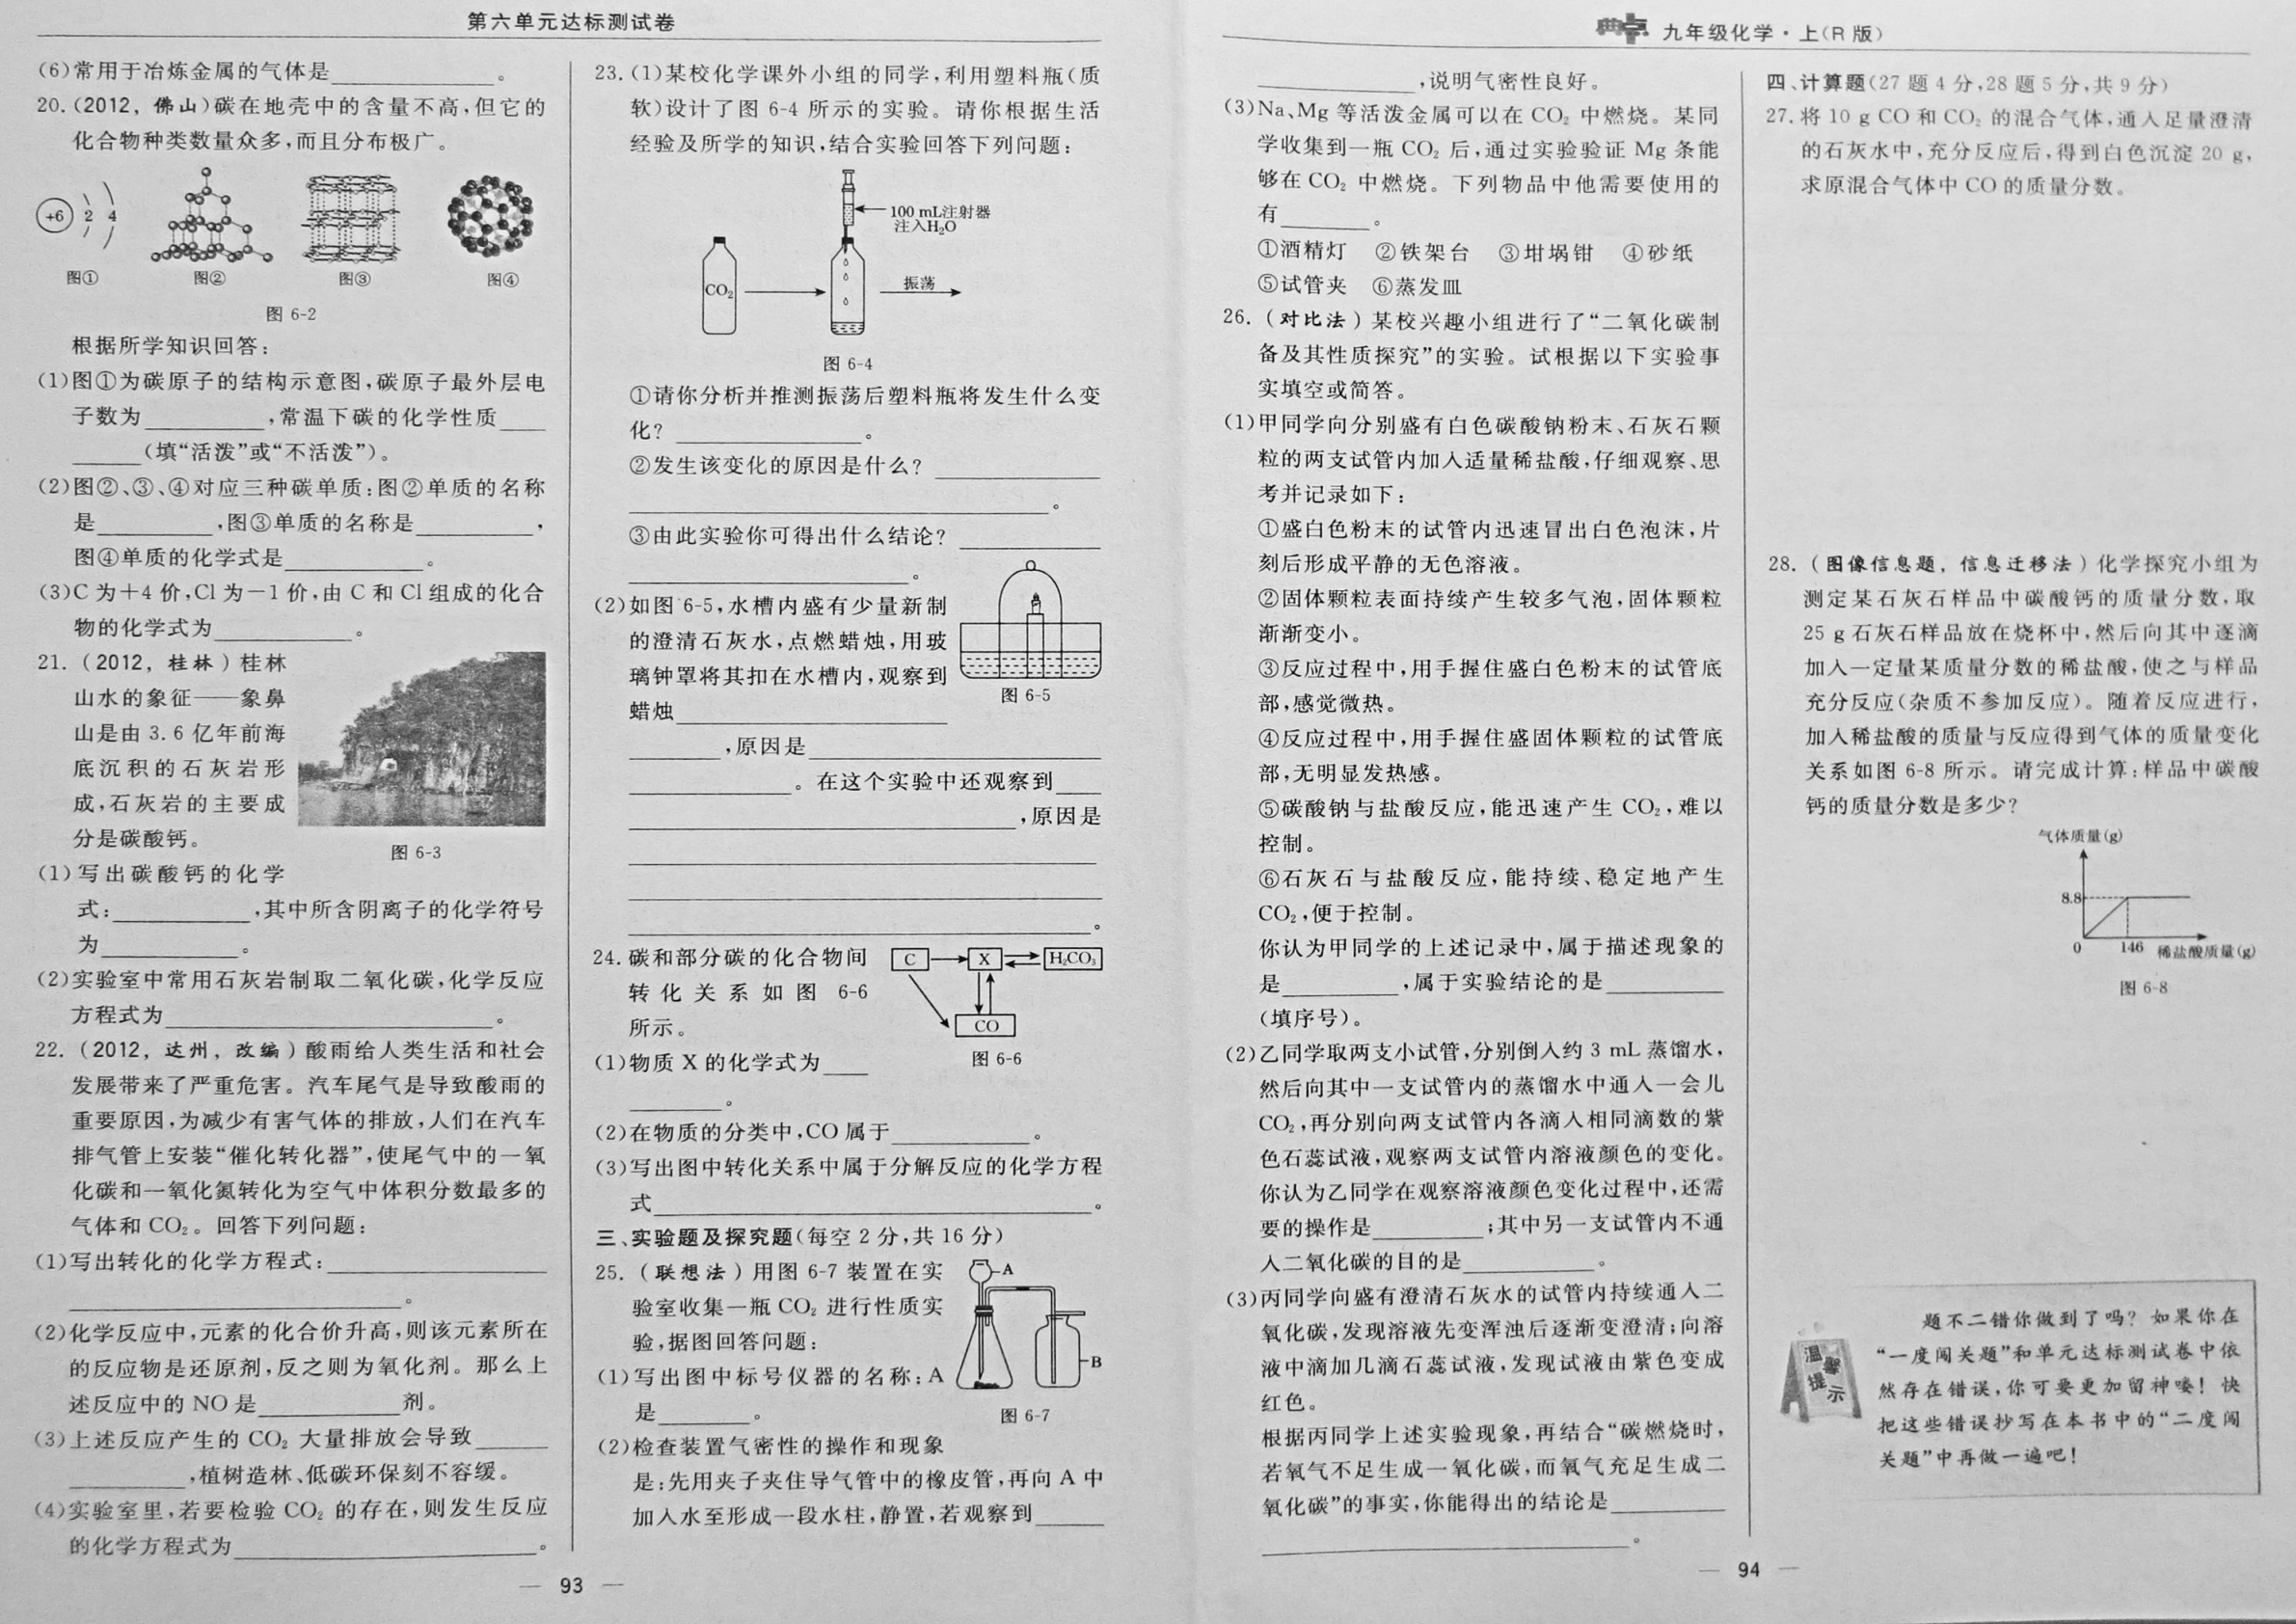 第六单元达标测试卷
(6)常用于冶炼金属的气体是____________。
20.(2012，佛山)碳在地壳中的含量不高,但它的
化合物种类数量众多,而且分布极广。
+6 2 4
图① 图② 图③ 图④
图 6-2
根据所学知识回答:
(1)图①为碳原子的结构示意图,碳原子最外层电
子数为________,常温下碳的化学性质____
____(填“活泼”或“不活泼”)。
(2)图②、③、④对应三种碳单质:图②单质的名称
是________,图③单质的名称是________,
图④单质的化学式是________。
(3)C 为+4 价,Cl 为-1 价,由 C 和 Cl 组成的化合
物的化学式为________。
21.(2012，桂林)桂林
山水的象征——象鼻
山是由 3.6 亿年前海
底沉积的石灰岩形
成,石灰岩的主要成
分是碳酸钙。
图 6-3
(1)写出碳酸钙的化学
式:________,其中所含阴离子的化学符号
为________。
(2)实验室中常用石灰岩制取二氧化碳,化学反应
方程式为________________。
22.(2012，达州，改编)酸雨给人类生活和社会
发展带来了严重危害。汽车尾气是导致酸雨的
重要原因,为减少有害气体的排放,人们在汽车
排气管上安装“催化转化器”,使尾气中的一氧
化碳和一氧化氮转化为空气中体积分数最多的
气体和 CO₂。回答下列问题:
(1)写出转化的化学方程式:____________
________________。
(2)化学反应中,元素的化合价升高,则该元素所在
的反应物是还原剂,反之则为氧化剂。那么上
述反应中的 NO 是________剂。
(3)上述反应产生的 CO₂ 大量排放会导致____
________,植树造林、低碳环保刻不容缓。
(4)实验室里,若要检验 CO₂ 的存在,则发生反应
的化学方程式为________________。
23.(1)某校化学课外小组的同学,利用塑料瓶(质
软)设计了图 6-4 所示的实验。请你根据生活
经验及所学的知识,结合实验回答下列问题:
100 mL注射器
注入H₂O
CO₂
振荡
图 6-4
①请你分析并推测振荡后塑料瓶将发生什么变
化? ____________。
②发生该变化的原因是什么? ____________
________________________。
③由此实验你可得出什么结论? ________
________________。
(2)如图 6-5,水槽内盛有少量新制
的澄清石灰水,点燃蜡烛,用玻
璃钟罩将其扣在水槽内,观察到
蜡烛________________
图 6-5
______,原因是________________
____________。在这个实验中还观察到____
________________________,原因是
________________________
________________________
________________________。
24.碳和部分碳的化合物间
转化关系如图 6-6
所示。
C X H₂CO₃
CO
图 6-6
(1)物质 X 的化学式为____
______。
(2)在物质的分类中,CO 属于________。
(3)写出图中转化关系中属于分解反应的化学方程
式________________________。
三、实验题及探究题(每空 2 分,共 16 分)
25.(联想法)用图 6-7 装置在实
验室收集一瓶 CO₂ 进行性质实
验,据图回答问题:
A
B
图 6-7
(1)写出图中标号仪器的名称:A
是________。
(2)检查装置气密性的操作和现象
是:先用夹子夹住导气管中的橡皮管,再向 A 中
加入水至形成一段水柱,静置,若观察到____
93
典点 九年级化学·上(R 版)
________,说明气密性良好。
(3)Na、Mg 等活泼金属可以在 CO₂ 中燃烧。某同
学收集到一瓶 CO₂ 后,通过实验验证 Mg 条能
够在 CO₂ 中燃烧。下列物品中他需要使用的
有________。
①酒精灯 ②铁架台 ③坩埚钳 ④砂纸
⑤试管夹 ⑥蒸发皿
26.(对比法)某校兴趣小组进行了“二氧化碳制
备及其性质探究”的实验。试根据以下实验事
实填空或简答。
(1)甲同学向分别盛有白色碳酸钠粉末、石灰石颗
粒的两支试管内加入适量稀盐酸,仔细观察、思
考并记录如下:
①盛白色粉末的试管内迅速冒出白色泡沫,片
刻后形成平静的无色溶液。
②固体颗粒表面持续产生较多气泡,固体颗粒
渐渐变小。
③反应过程中,用手握住盛白色粉末的试管底
部,感觉微热。
④反应过程中,用手握住盛固体颗粒的试管底
部,无明显发热感。
⑤碳酸钠与盐酸反应,能迅速产生 CO₂,难以
控制。
⑥石灰石与盐酸反应,能持续、稳定地产生
CO₂,便于控制。
你认为甲同学的上述记录中,属于描述现象的
是________,属于实验结论的是________
(填序号)。
(2)乙同学取两支小试管,分别倒入约 3 mL 蒸馏水,
然后向其中一支试管内的蒸馏水中通入一会儿
CO₂,再分别向两支试管内各滴入相同滴数的紫
色石蕊试液,观察两支试管内溶液颜色的变化。
你认为乙同学在观察溶液颜色变化过程中,还需
要的操作是________;其中另一支试管内不通
入二氧化碳的目的是________。
(3)丙同学向盛有澄清石灰水的试管内持续通入二
氧化碳,发现溶液先变浑浊后逐渐变澄清;向溶
液中滴加几滴石蕊试液,发现试液由紫色变成
红色。
根据丙同学上述实验现象,再结合“碳燃烧时,
若氧气不足生成一氧化碳,而氧气充足生成二
氧化碳”的事实,你能得出的结论是________
________________________。
四、计算题(27 题 4 分,28 题 5 分,共 9 分)
27.将 10 g CO 和 CO₂ 的混合气体,通入足量澄清
的石灰水中,充分反应后,得到白色沉淀 20 g,
求原混合气体中 CO 的质量分数。
28.(图像信息题，信息迁移法)化学探究小组为
测定某石灰石样品中碳酸钙的质量分数,取
25 g 石灰石样品放在烧杯中,然后向其中逐滴
加入一定量某质量分数的稀盐酸,使之与样品
充分反应(杂质不参加反应)。随着反应进行,
加入稀盐酸的质量与反应得到气体的质量变化
关系如图 6-8 所示。请完成计算:样品中碳酸
钙的质量分数是多少?
气体质量(g)
8.8
0 146 稀盐酸质量(g)
图 6-8
温馨提示
题不二错你做到了吗? 如果你在
“一度闯关题”和单元达标测试卷中依
然存在错误,你可要更加留神喽! 快
把这些错误抄写在本书中的“二度闯
关题”中再做一遍吧!
94